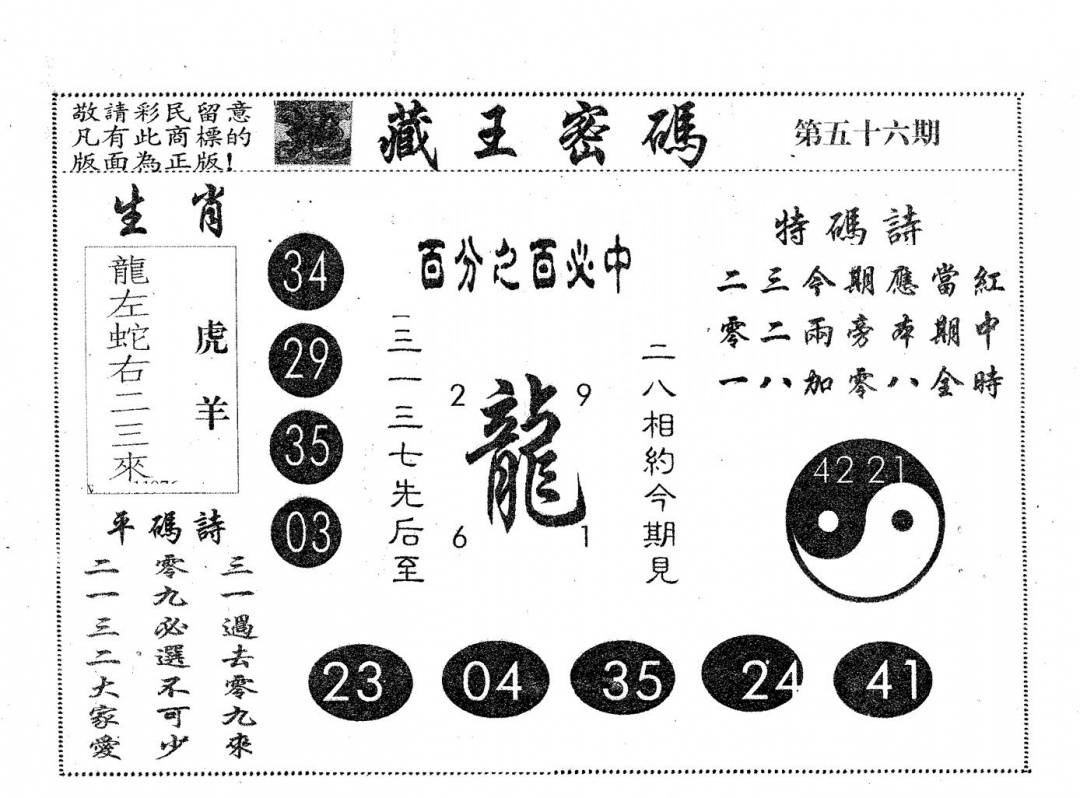 敬請彩民留意
凡有此商標的
版面為正版!
地藏王密碼
第五十六期
生肖
龍左蛇右二三來
虎羊
34
29
35
03
百分之百必中
三一三七先后至
2 9
龍
6 1
二八相約今期見
特碼詩
二三今期應當紅
零二兩旁本期中
一八加零八金時
42 21
平碼詩
三一過去零九來
零九必選不可少
二一三二大家愛
23 04 35 24 41